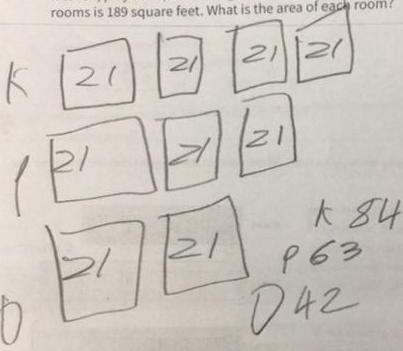 rooms is 189 square feet. What is the area of each room?
K 21 21 21 21
P 21 21 21
D 21 21
K 84
P 63
D 42